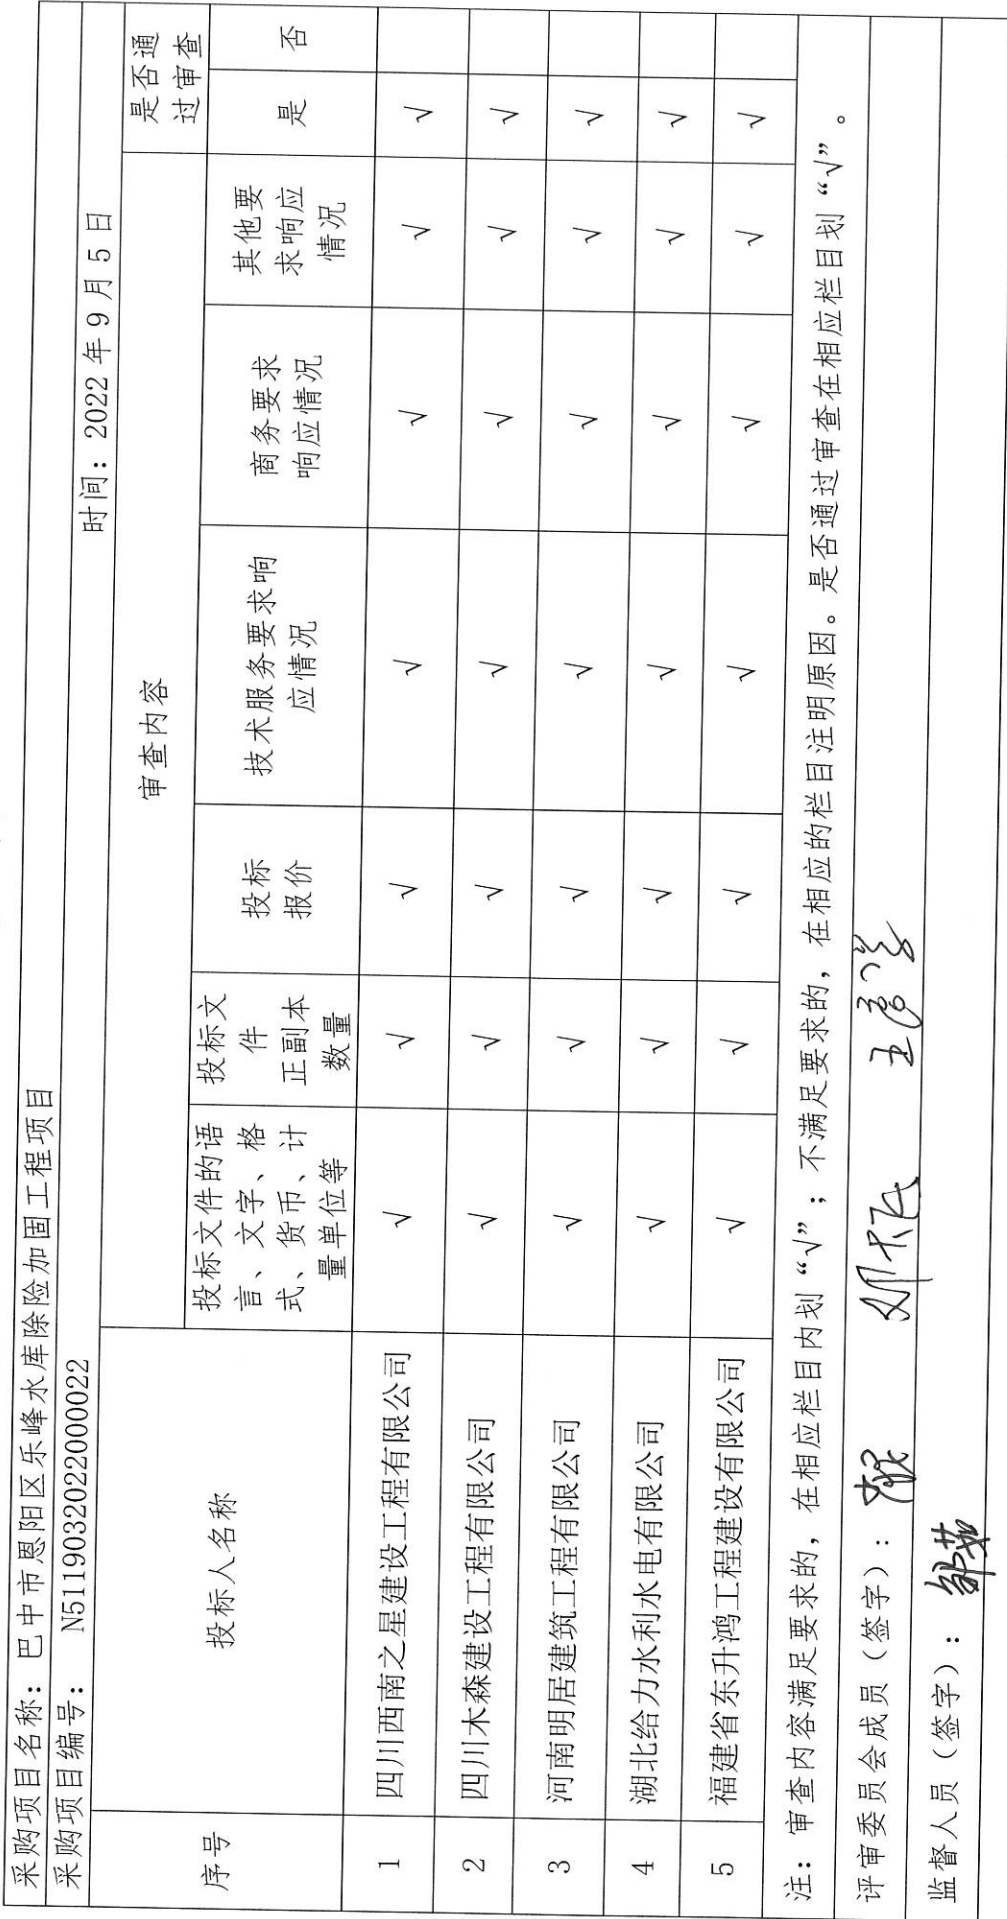 采购项目名称：巴中市恩阳区乐峰水库除险加固工程项目
采购项目编号： N5119032022000022
时间：2022 年 9 月 5 日
序号
投标人名称
审查内容
是否通
过审查
投标文件的语
言、文字、格
式、货币、计
量单位等
投标文
件
正副本
数量
投标
报价
技术服务要求响
应情况
商务要求
响应情况
其他要
求响应
情况
是
否
1 四川西南之星建设工程有限公司 √ √ √ √ √ √ √
2 四川木森建设工程有限公司 √ √ √ √ √ √ √
3 河南明居建筑工程有限公司 √ √ √ √ √ √ √
4 湖北给力水利水电有限公司 √ √ √ √ √ √ √
5 福建省东升鸿工程建设有限公司 √ √ √ √ √ √ √
注：审查内容满足要求的，在相应栏目内划“√”；不满足要求的，在相应的栏目注明原因。是否通过审查在相应栏目划“√”。
评审委员会成员（签字）：
监督人员（签字）：